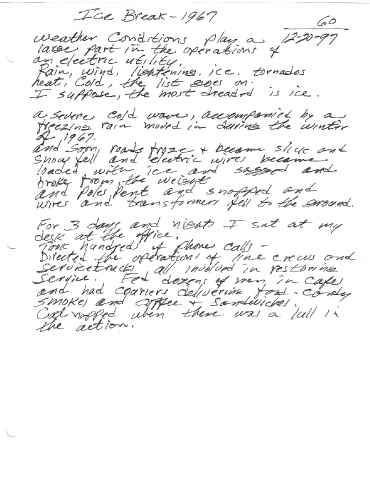 Ice Break - 1967
60
12-20-97
Weather Conditions play a
large part in the operations of
an electric utility.
Rain, wind, lightening, ice, tornados
heat, Cold, the list goes on.
I suppose, the most dreaded is ice.
a severe cold wave, accompanied by a
freezing rain moved in during the winter
of 1967.
and soon, roads froze + became slick and
snow fell and electric wires became
loaded with ice and sagged and
broke from the weight
and Poles bent and snapped and
wires and transformers fell to the ground.
For 3 days and nights I sat at my
desk at the office.
Took hundreds of phone calls -
Directed the operations of line crews and
Service trucks all involved in restoring
Service. Fed dozens of men in Cafes
and had couriers delivering food - Candy
smokes and coffee + sandwiches.
Cat napped when there was a lull in
the action.